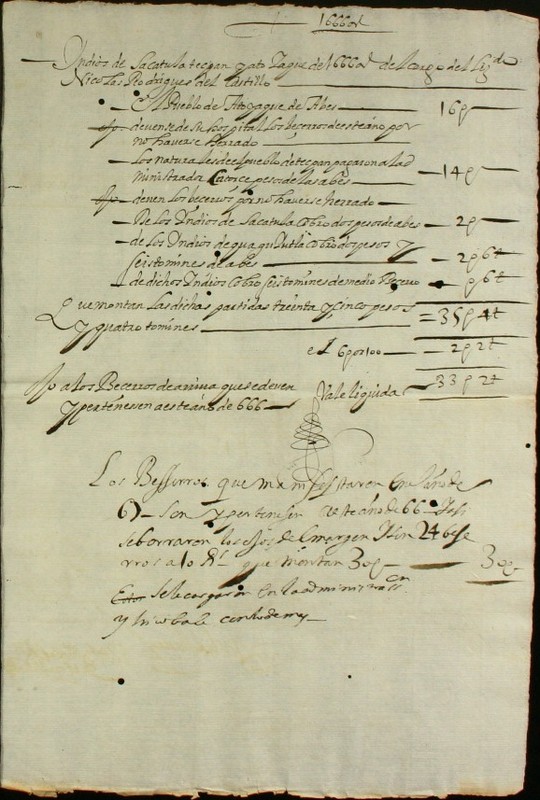 1666 as
Yndios de Sacatula tecpan y ato Yaque del 1666 as del cargo del Lizdo
Nicolas Rodrigues del castillo
El Pueblo de Atoyaque de Abes — 16 p
devense de su hospital los becerros de este año por
no haverse herrado
los naturales de el pueblo de tecpan pagaron al ad
ministrador Catorce pesos de las abes — 14 p
deven los becerros por no haverse herrado
De los Yndios de Sacatula Cobro dos pesos de abes — 2 p
de los Yndios de Cobro dos pesos y
seis tomines de abes — 2 p 6 t
de dichos Yndios Cobro seis tomines de medio Becerro — p 6 t
Que montan las dichas partidas treinta y cinco pesos
y quatro tomines — 35 p 4 t
el 6 por 100 — 2 p 2 t
Vale liquida — 33 p 2 t
Jo a los Becerros de arriva que se deven
y pertenesen a este año de 666
Los Beserros que manifestaron En el año de
67 — son y pertenesen a este año de 66 —
se borraron los del margen son 24 bese
rros a 10 Rs que montan 30 p — 30 p
se le cargaron En la administracion
y hiso bale con lo demas